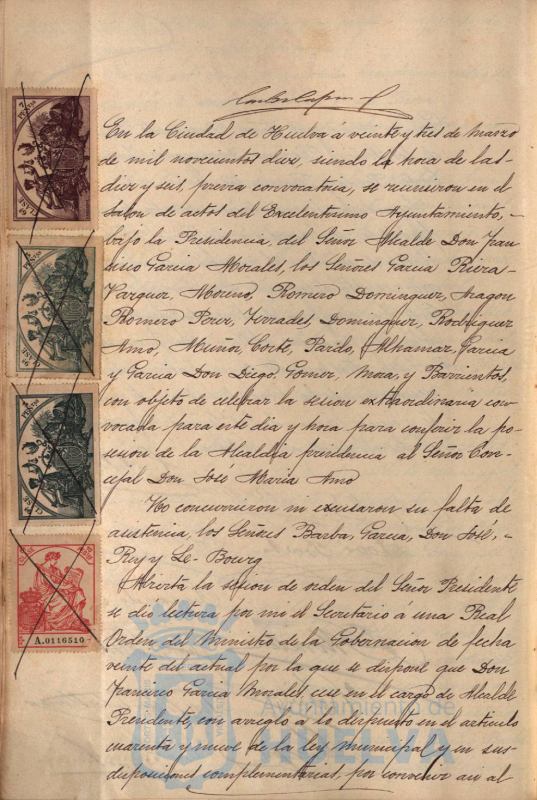 En la Ciudad de Huelva á veinte y tres de Marzo
de mil novecientos diez, siendo la hora de las-
diez y seis, previa convocatoria, se reunieron en el
salon de actos del Excelentisimo Ayuntamiento, -
bajo la Presidencia, del Señor Alcalde Don Fran
cisco Garcia Morales, los Señores Garcia Riera-
Vazquez, Moreno, Romero Dominguez, Aragon
Romero Perez, Terrades, Dominguez, Rodriguez
Amo, Muñoz, Corte, Pardo, Alhamar, Garcia
y Garcia Don Diego, Gomez, Mora, y Barrientos,
con objeto de celebrar la sesion extraordinaria con
vocada para este dia y hora para conferir la po-
sesion de la Alcaldia presidencia al Señor Con-
cejal Don José Maria Amo
No concurrieron ni excusaron su falta de
asistencia, los Señores Barba, Garcia, Don José, -
Rey y Le-Bourg
Abierta la sesion de orden del Señor Presidente
se dio lectura por mi el Secretario á una Real
Orden del Ministro de la Gobernacion de fecha
veinte del actual por la que se dispone que Don
Francisco Garcia Morales, cese en el cargo de Alcalde
Presidente, con arreglo á lo dispuesto en el articulo
cuarenta y nueve de la ley Municipal y en sus-
disposiciones complementarias, por convenir asi al
A.0116510
Ayuntamiento de
HUELVA